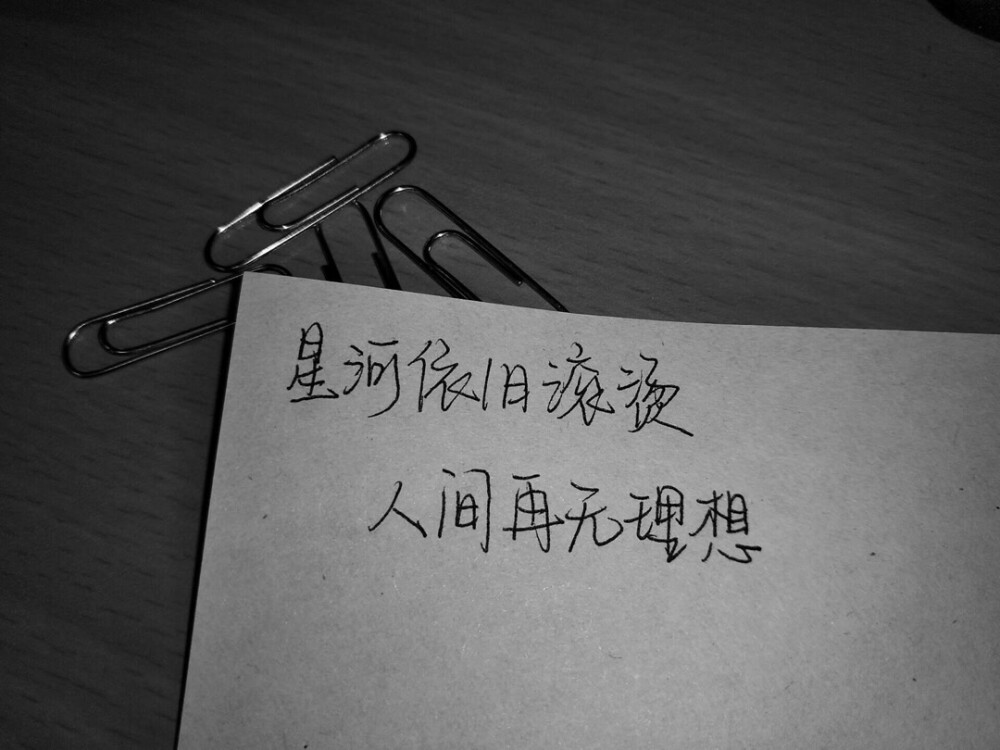 星河依旧滚烫
人间再无理想